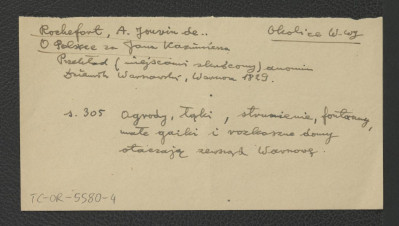 Rochefort, A. Jouvin de.. Okolice W-wy
O Polsce za Jana Kazimierza
Przekład (miejscami skrócony) anonim
Dziennik Warszawski, Warszawa 1829.
s. 305 ogrody, łąki, strumienie, fontanny,
małe gaiki i rozkoszne domy
otaczają zewsząd Warszawę.
TC-OR-5580-4